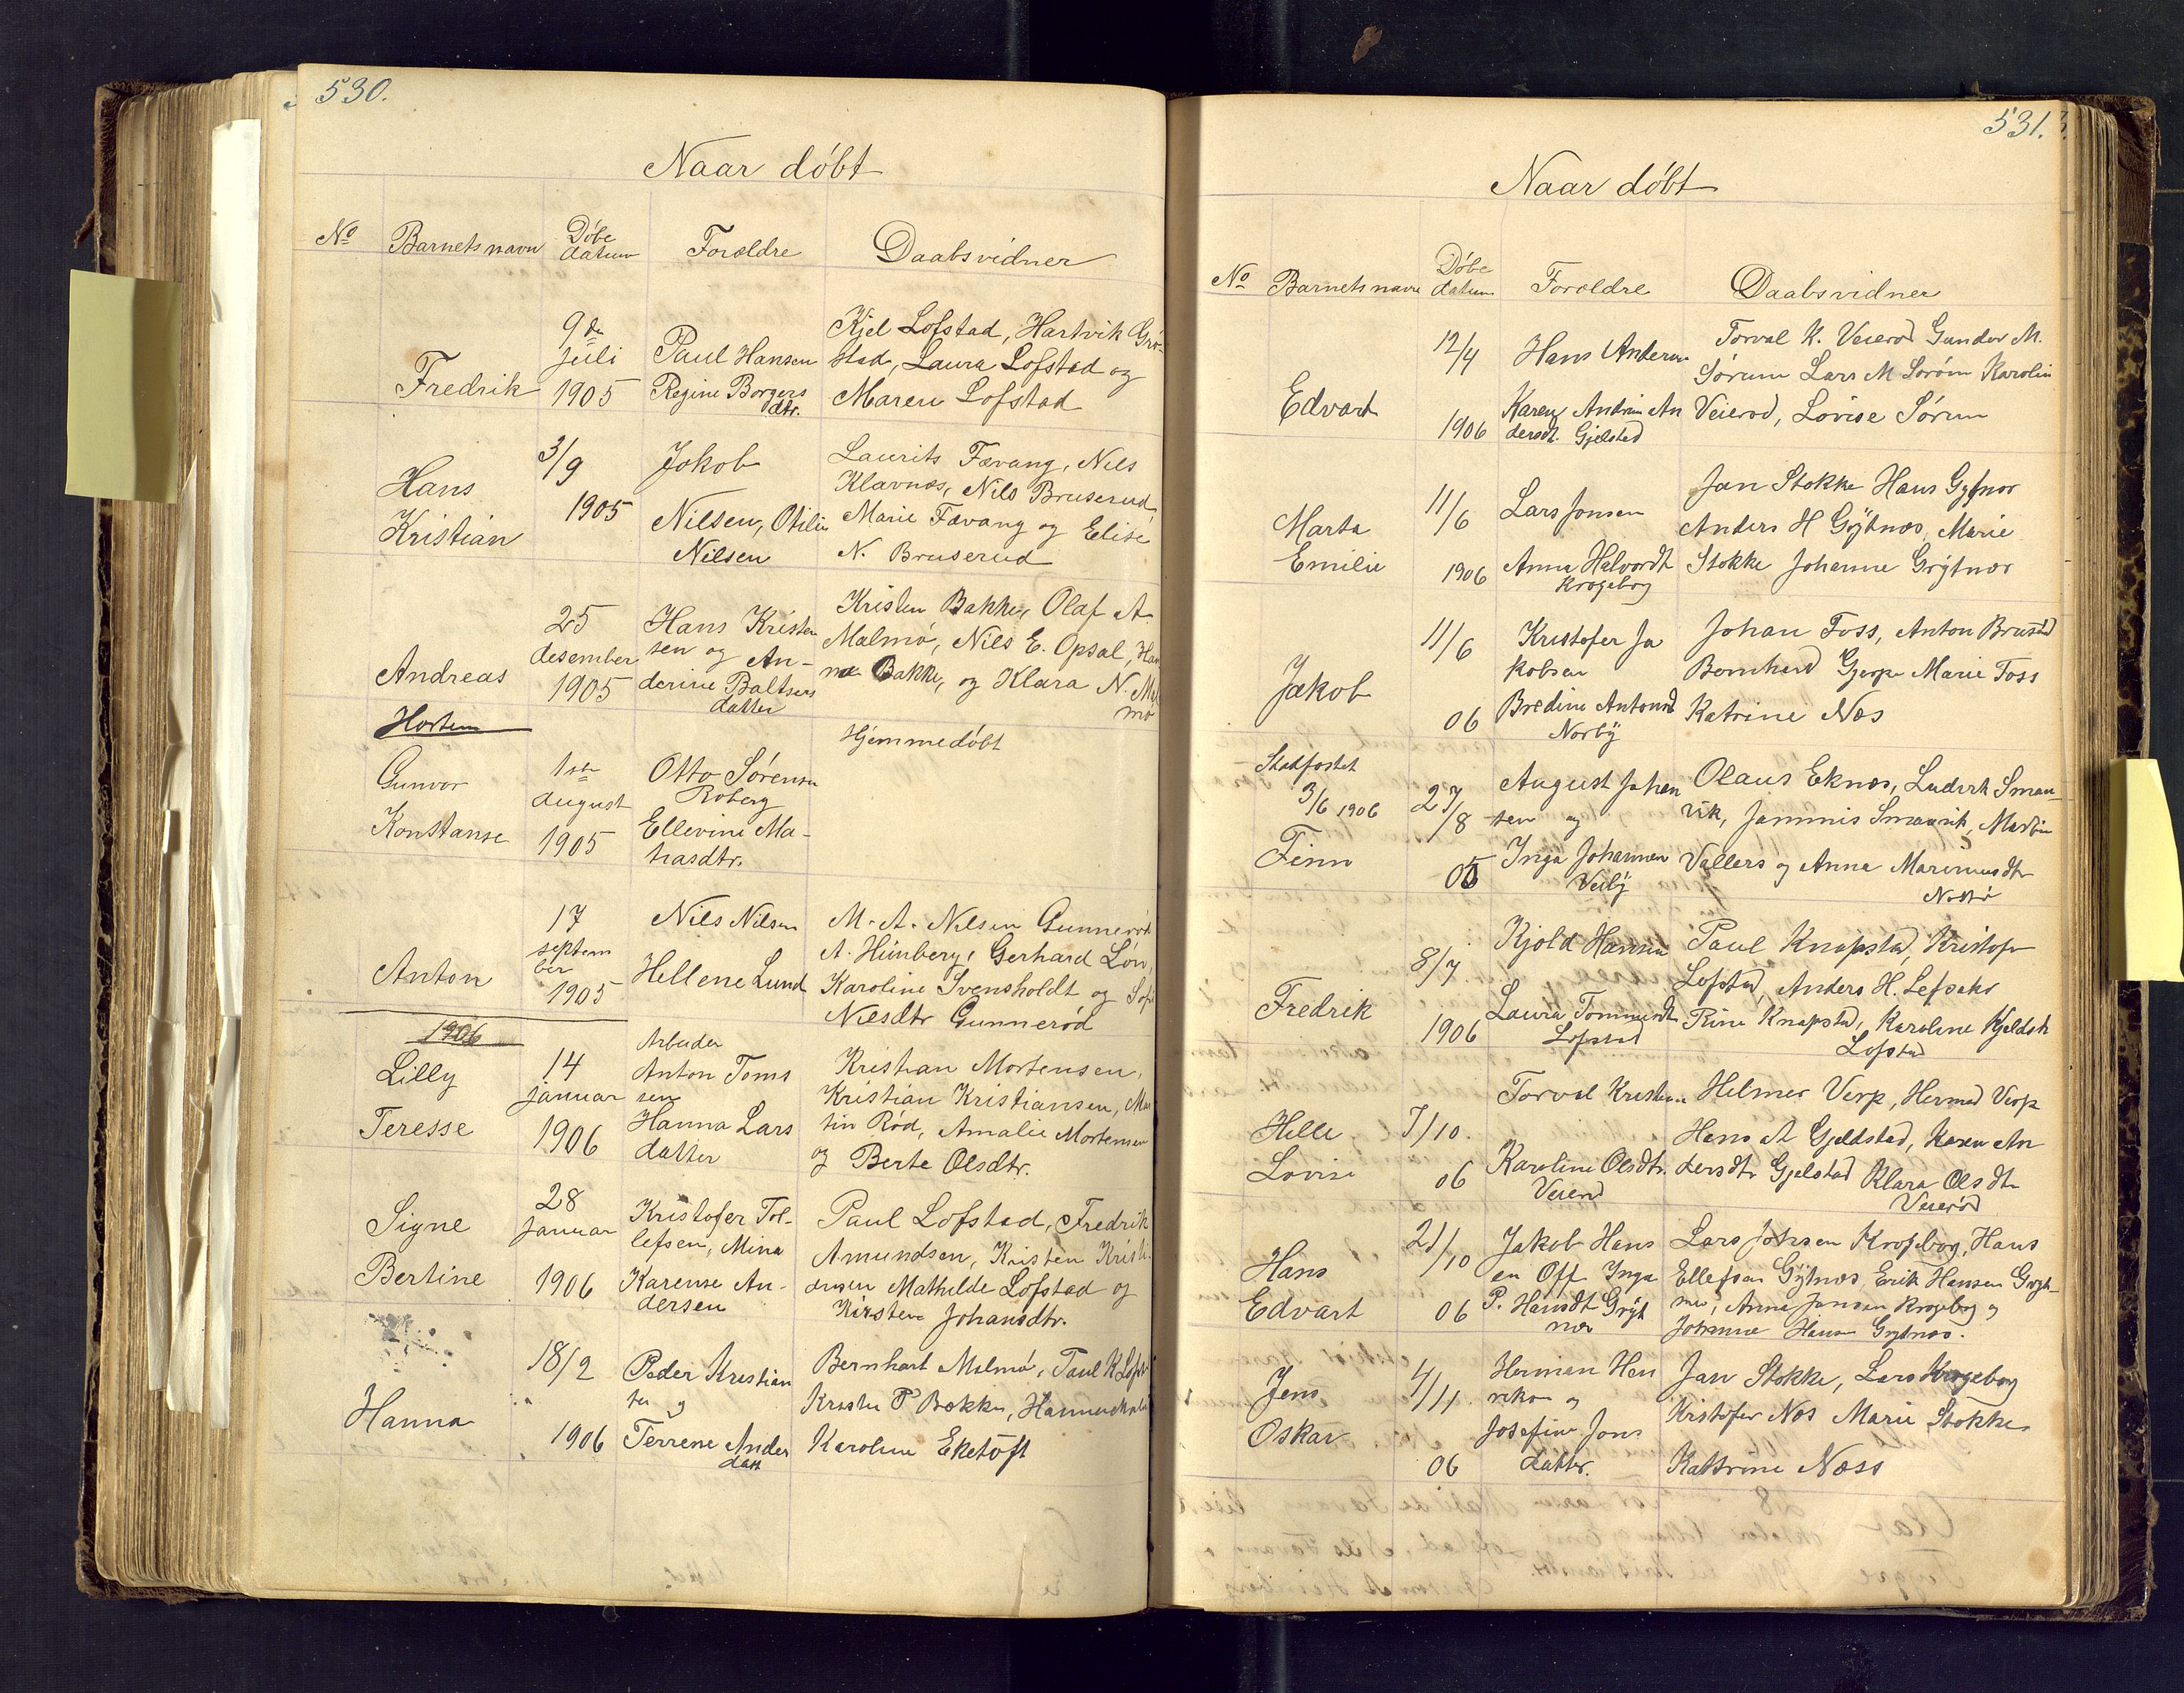 530.
Naar döbt
No Barnets navn Döbe datum Forældre Daabsvidner
Fredrik
9de
juli
1905
Paul Hansen
Regine Borgers
dtr.
Kjel Lofstad, Hartvik Grø-
stad, Laura Lofstad og
Maren Lofstad
Hans
Kristian
3/9
1905
Jakob
Nilsen, Otilie
Nilsen
Laurits Fævang, Nils
Klavnæs, Nils Bruserud,
Marie Fævang og Elise
N. Bruserud
Andreas
25
desember
1905
Hans Kristen
sen og An-
derine Baltsers
datter
Kristen Bakke, Olaf A
Malmø, Nils E. Opsal, Han
na Bakke, og Klara N. Mal
mø
Horten
Gunvor
Konstanse
1ste
august
1905
Otto Sørensen
Roberg
Ellevine Ma-
tiasdtr.
Hjemmedöbt
Anton
17
septem
ber
1905
Nils Nilsen
Hellene Lund
M. A. Nilsen Gunnerød
A. Himberg, Gerhard Løv,
Karoline Svensholdt og Sofi
Nilsdtr Gunnerød
1906
Lilly
Teresse
14
januar
1906
Arbeider
Anton Toms
sen
Hanna Lars
datter
Kristian Mortensen,
Kristian Kristiansen, Mar
tin Rød, Amalie Mortensen
og Berte Olsdtr.
Signe
Bertine
28
januar
1906
Kristofer Tol-
lefsen, Mina
Karense An-
dersen
Paul Lofstad, Fredrik
Amundsen, Kristen Kristi
ansen Mathilde Lofstad og
Kirsten Johansdtr.
Hanna
18/2
1906
Peder Kristian
sen og
Terrene Anders
datt
Bernhart Malmø, Paul K Lofst
Kristen P Bakke, Hanna Malm
Karoline Eketoft
531.
Naar döbt
No Barnets navn Döbe datum Forældre Daabsvidner
Edvart
12/4
1906
Hans Andersen
Karen Andrine An
dersdt. Gjelstad
Torval K. Veierød Gunder M.
Sørum Lars M Sørøm Karolin
Veierød, Lovise Sørum
Marta
Emilie
11/6
1906
Lars Jonsen
Anna Halvordt
Krogebog
Jan Stokke Hans Gytnor
Anders H Gøytnæs, Marie
Stokke Johanne Grytnær
Jakob
11/6
06
Kristofer Ja
kobsen
Bredine Antonsd
Norby
Johan Foss, Anton Brusd
Bernherd Gjerpe Marie Foss
Katrine Næs
Stadfæstet
3/6 1906
Finn
27/8
05
August Johan
sen og
Inga Johannesen
Veiby
Olaus Eknæs, Ludvik Smau-
vik, Jammis Smauvik, Martin
Vallers og Anna Marinusdtr
Nøttrø
Fredrik
8/7
1906
Kjøld Hansen
Laura Tommasdt
Lofstad
Paul Knapstad, Kristofer
Lofstad, Anders H. Lefsaker
Rine Knapstad, Karoline Kjeldsdt
Lofstad
Hille
Lovise
7/10.
06
Torval Kristensen
Karoline Olsdtr.
Veierød
Helmer Verp, Herman Verp
Hans A Gjeldstad, Karen An
dersdtr Gjelstad Klara Olsdtr
Veierød
Hans
Edvart
21/10
06
Jakob Hans
en Off Inga
P. Hansdt Gryt
nær
Lars Johnsen Krogebog, Hans
Ellefsen Gÿtnæs, Erik Hansen Gryt-
næs, Anne Jansen Krogebog og
Johanne Hansen Grytnæs.
Jens
Oskar
4/11
06
Herman Hen
riksen og
Josefine Jons
datter.
Jan Stokke, Lars Krogebog
Kristofer Næs Marie Stokke
Kattrine Næss